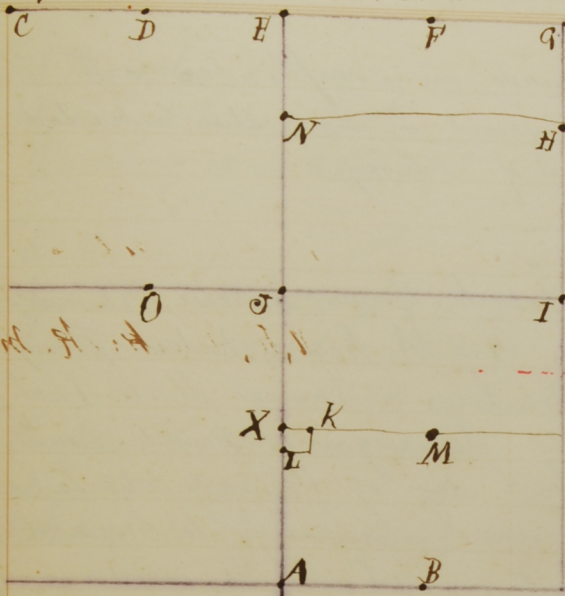 C D E F G
N H
O J I
X K
L M
A B